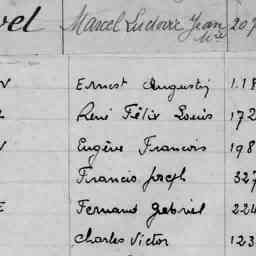 vel Marcel Ludovic Jean 20
Mie
Ernest Augustin 118
René Félix Louis 172
Eugène Francois 198
Francis Joseph 327
E Fernand Gabriel 224
Charles Victor 123